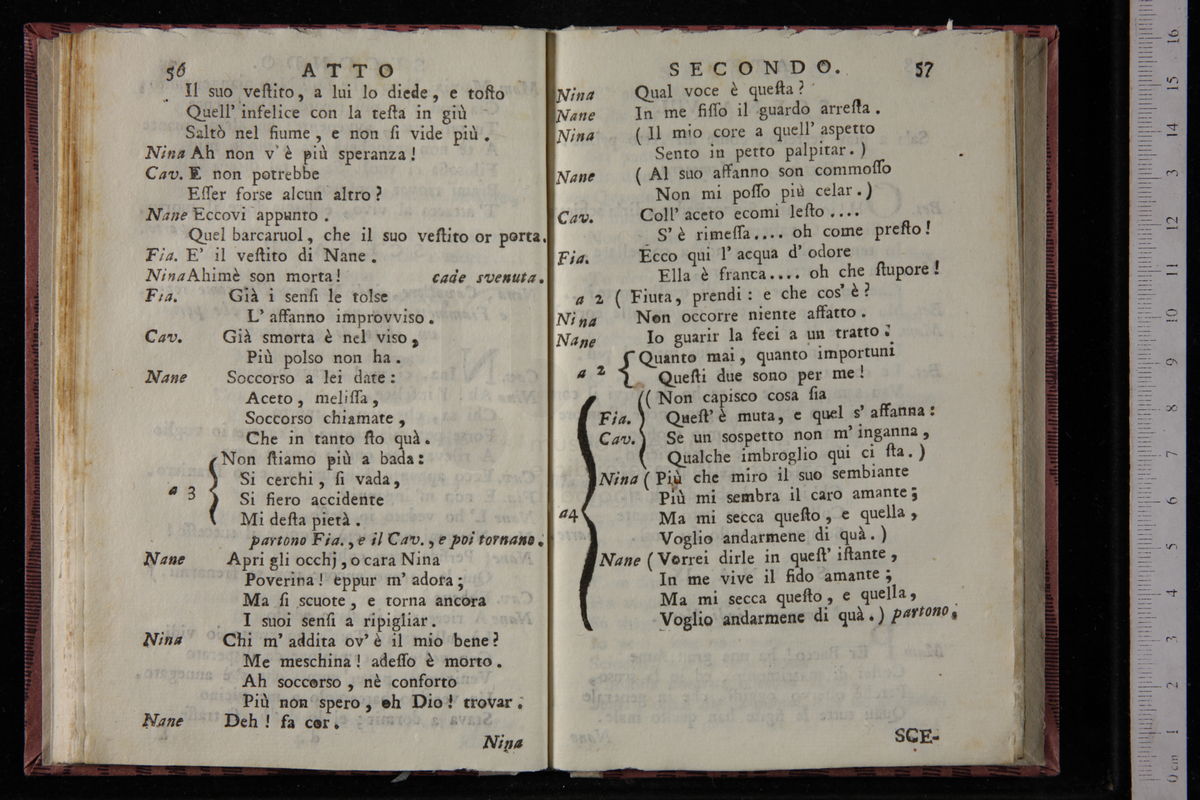 56 ATTO
Il suo veſtito, a lui lo diede, e toſto
Quell' infelice con la teſta in giù
Saltò nel fiume, e non ſi vide più.
Nina Ah non v'è più speranza!
Cav. E non potrebbe
Eſſer forse alcun altro?
Nane Eccovi appunto.
Quel barcaruol, che il suo veſtito or porta.
Fia. E' il veſtito di Nane.
Nina Ahimè son morta! cade svenuta.
Fia. Già i senſi le tolse
L' affanno improvviso.
Cav. Già smorta è nel viso,
Più polso non ha.
Nane Soccorso a lei date:
Aceto, meliſſa,
Soccorso chiamate,
Che in tanto ſto quà.
Non ſtiamo più a bada:
Si cerchi, ſi vada,
a 3
Si fiero accidente
Mi deſta pietà.
partono Fia., e il Cav., e poi tornano.
Nane Apri gli occhj, o cara Nina
Poverina! eppur m' adora;
Ma ſi scuote, e torna ancora
I suoi senſi a ripigliar.
Nina Chi m' addita ov' è il mio bene?
Me meschina! adeſſo è morto.
Ah soccorso, nè conforto
Più non spero, oh Dio! trovar.
Nane Deh! fa cor.
Nina
SECONDO. 57
Nina Qual voce è queſta?
Nane In me fiſſo il guardo arreſta.
Nina (Il mio core a quell' aspetto
Sento in petto palpitar.)
Nane (Al suo affanno son commoſſo
Non mi poſſo più celar.)
Cav. Coll' aceto ecomi leſto....
S' è rimeſſa.... oh come preſto!
Fia. Ecco qui l' acqua d' odore
Ella è franca.... oh che ſtupore!
a 2 (Fiuta, prendi: e che cos' è?
Nina Non occorre niente affatto.
Nane Io guarir la feci a un tratto.
Quanto mai, quanto importuni
a 2
Queſti due sono per me!
(Non capisco cosa ſia
Fia. Queſt' è muta, e quel s' affanna:
Cav. Se un sospetto non m' inganna,
Qualche imbroglio qui ci ſta.)
Nina (Più che miro il suo sembiante
Più mi sembra il caro amante;
a4 Ma mi secca queſto, e quella,
Voglio andarmene di quà.)
Nane (Vorrei dirle in queſt' iſtante,
In me vive il fido amante;
Ma mi secca queſto, e quella,
Voglio andarmene di quà.) partono.
SCE-
0 cm 1 2 3 4 5 6 7 8 9 10 11 12 13 14 15 16